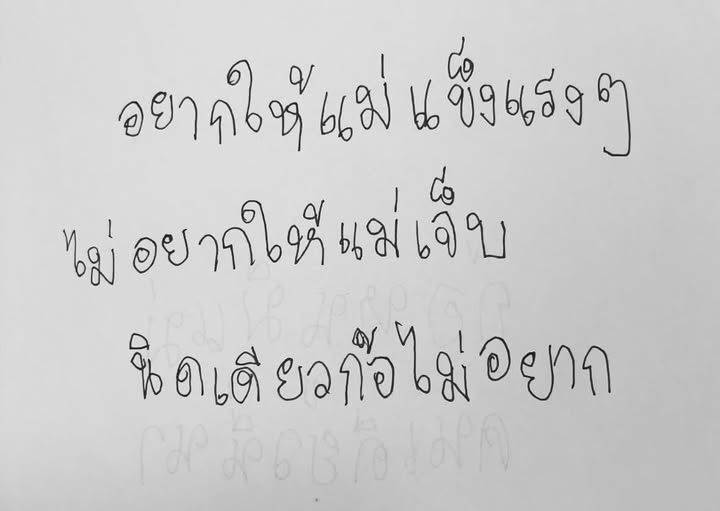 อยากให้แม่แข็งแรงๆ
ไม่อยากให้แม่เจ็บ
นิดเดียวก้อไม่อยาก